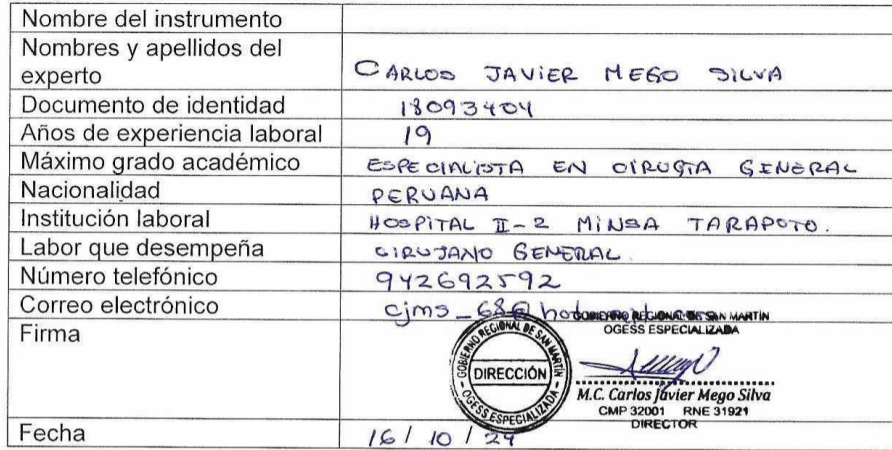 Nombre del instrumento
Nombres y apellidos del
experto
CARLOS JAVIER MEGO SILVA
Documento de identidad 18093404
Años de experiencia laboral 19
Máximo grado académico ESPECIALISTA EN CIRUGÍA GENERAL
Nacionalidad PERUANA
Institución laboral HOSPITAL II-2 MINSA TARAPOTO.
Labor que desempeña CIRUJANO GENERAL
Número telefónico 942692592
Correo electrónico cjms_68@
Firma
GOBIERNO REGIONAL DE SAN MARTÍN
OGESS ESPECIALIZADA
GOBIERNO REGIONAL DE SAN MARTÍN
DIRECCIÓN
OGESS ESPECIALIZADA
M.C. Carlos Javier Mego Silva
CMP 32001 RNE 31921
DIRECTOR
Fecha 16 / 10 / 24